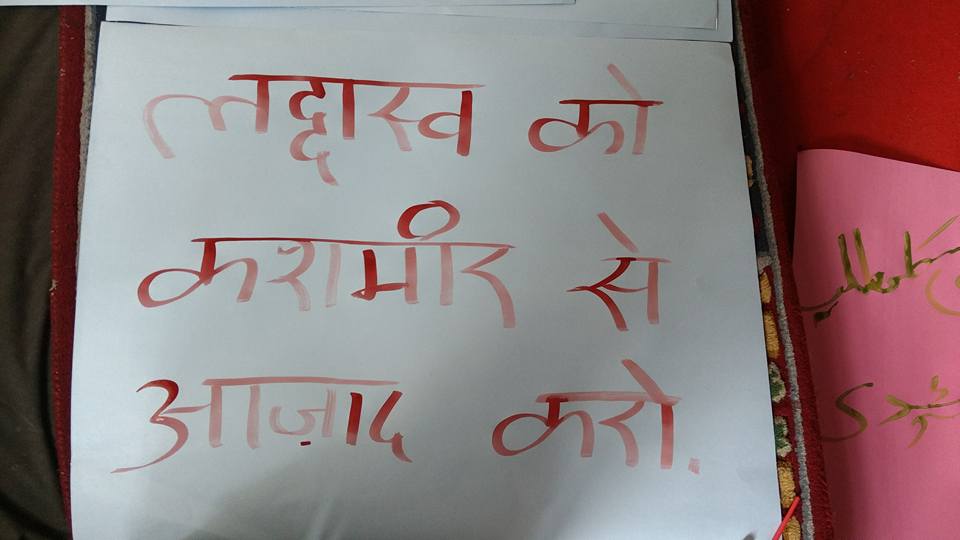 लद्दाख को
कशमीर से
आज़ाद करो.